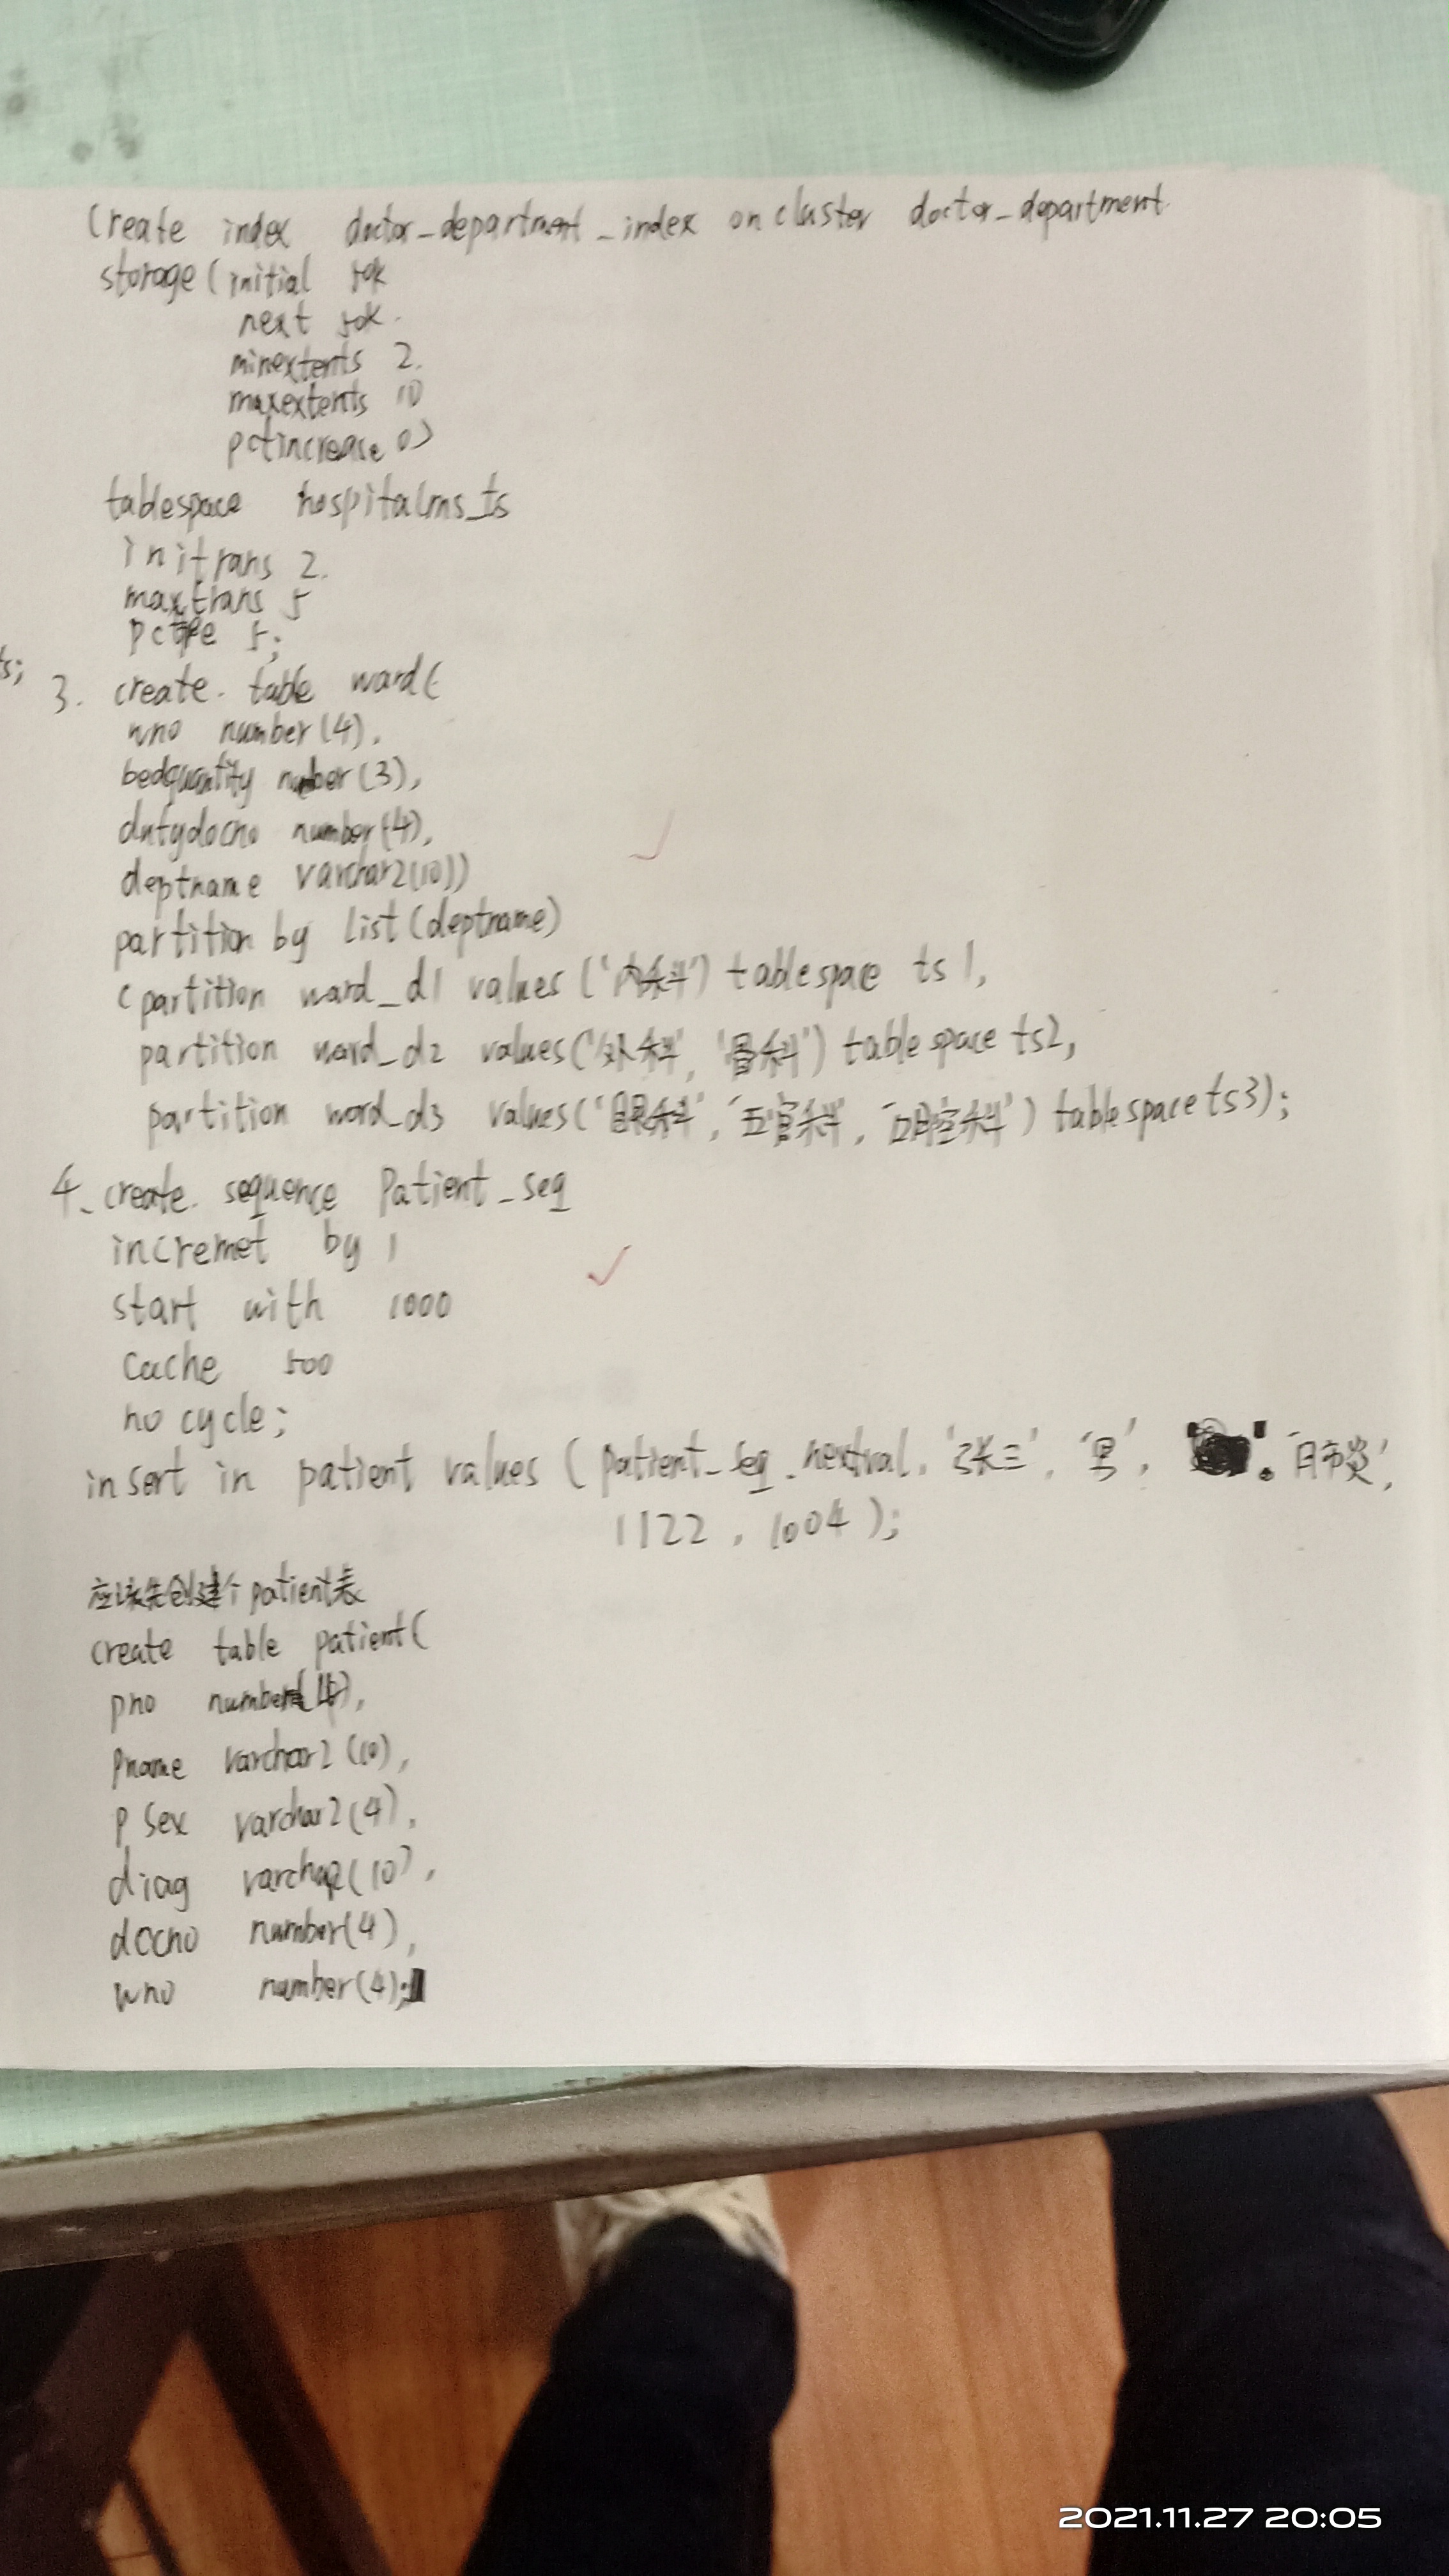 create index doctor_department_index on cluster doctor_department
storage(initial 50k
next 50k
minextents 2
maxextents 10
pctincrease 0)
tablespace hospitalms_ts
initrans 2
maxtrans 5
5;
ts;
3. create table ward(
wno number(4),
bedquantity number(3),
dutydocno number(4),
deptname varchar2(10))
partition by list(deptname)
(partition ward_d1 values ('内科') tablespace ts1,
partition ward_d2 values('外科', '骨科') tablespace ts2,
partition ward_d3 values('眼科', '五官科', '口腔科') tablespace ts3);
4. create sequence Patient_seq
incremet by 1
start with 1000
cache 500
no cycle;
insert in patient values (patient_seq.nextval, '张三', '男', '肺炎',
1122, 1004);
应该先创建个patient表
create table patient(
pno number(4),
pname varchar2(10),
psex varchar2(4),
diag varchar2(10),
docno number(4),
wno number(4);
2021.11.27 20:05